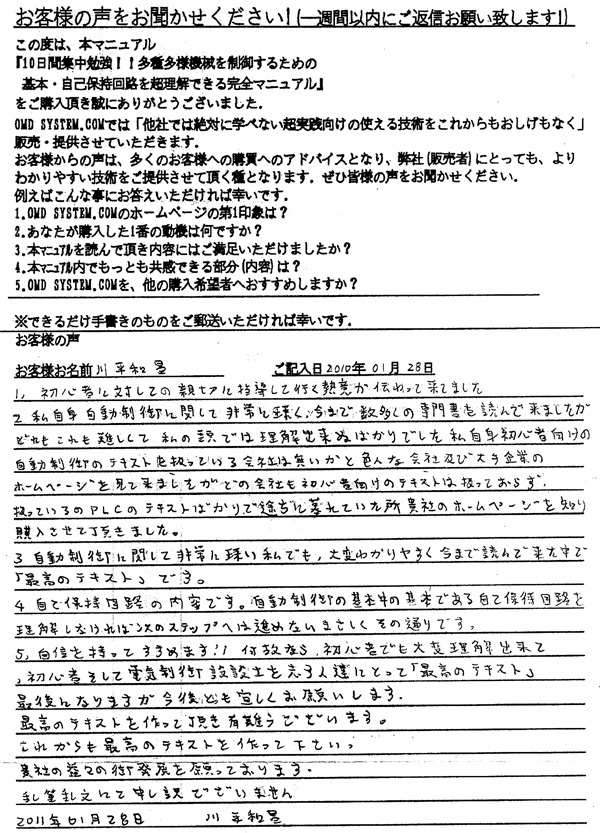 お客様の声をお聞かせください！(一週間以内にご返信お願い致します！)
この度は、本マニュアル
『10日間集中勉強！！多種多様機械を制御するための
基本・自己保持回路を超理解できる完全マニュアル』
をご購入頂き誠にありがとうございました．
OMD SYSTEM.COMでは「他社では絶対に学べない超実践向けの使える技術をこれからもおしげもなく」
販売・提供させていただきます．
お客様からの声は、多くのお客様への購買へのアドバイスとなり、弊社(販売者)にとっても、より
わかりやすい技術をご提供させて頂く種となります．ぜひ皆様の声をお聞かせください．
例えばこんな事にお答えいただければ幸いです．
1.OMD SYSTEM.COMのホームページの第1印象は？
2.あなたが購入した1番の動機は何ですか？
3.本マニュアルを読んで頂き内容にはご満足いただけましたか？
4.本マニュアル内でもっとも共感できる部分(内容)は？
5.OMD SYSTEM.COMを、他の購入希望者へおすすめしますか？
※できるだけ手書きのものをご郵送いただければ幸いです．
お客様の声
お客様お名前 川平和 ご記入日2010年 01月 28日
1，初心者に対しての親切に指導して行く熱意が伝わって来てました
2 私自身 自動制御に関して 非常に疎く、今まで 数多くの専門書を読んで来ましたが
どれも これも 難しくて 私の 頭では 理解出来ぬばかりでした 私自身初心者向けの
自動制御のテキストを扱っている 会社は無いかと 色んな会社及び大手企業の
ホームページを見て来ましたがどの会社も初心者向けのテキストは扱っておらず、
扱っているのPLCのテキストばかりで途方に暮れていた所 貴社のホームページを知り
購入させて頂きました。
3 自動制御に関して 非常に疎い私でも、大変わかりやすく今まで読んで来た中で
「最高のテキスト」です。
4 自己保持回路の内容です。自動制御の基本中の基本である自己保持回路を
理解しなければ次のステップへは進めない まさしく その通りです。
5，自信を持って すすめます！！ 何故なら、初心者でも大変理解出来て
、初心者そして電気制御設計士を志す人達にとって「最高のテキスト」
最後になりますが 今後とも宜しくお願いします．
最高のテキストを作って頂き有難うございます。
これからも最高のテキストを作って下さい。
貴社の益々の御発展を願っております．
乱筆乱文にて申し訳ございません
2011年01月28日 川平和